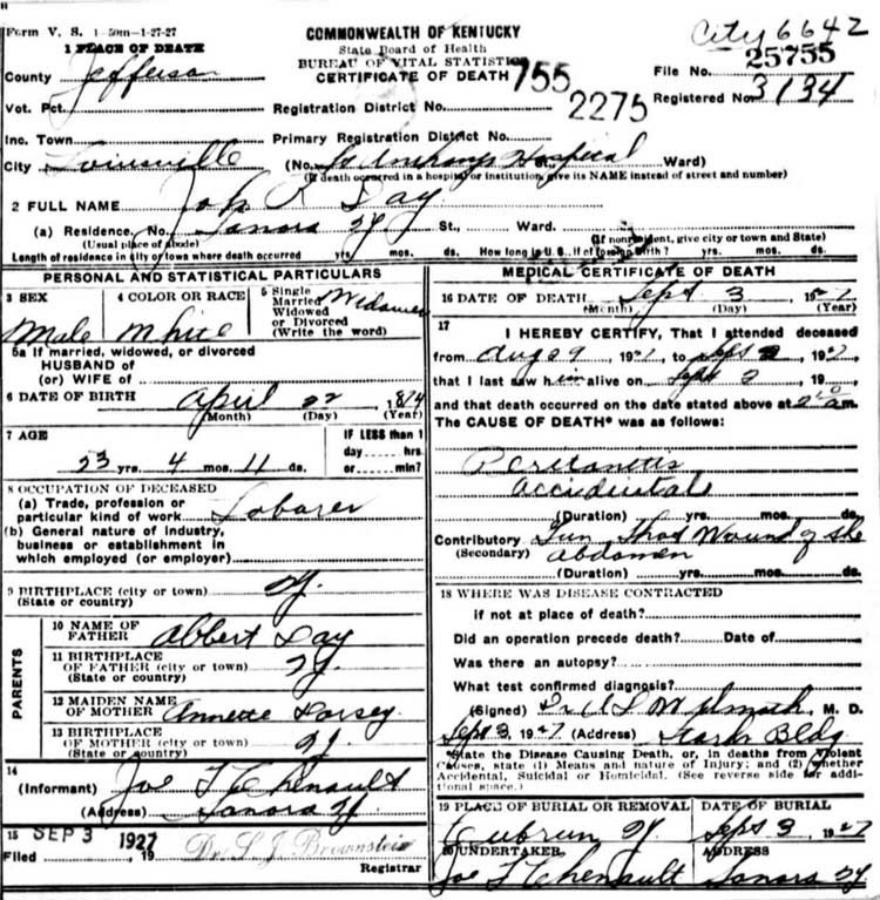 Form V. S. 1-50m-1-27-27
COMMONWEALTH OF KENTUCKY
State Board of Health
BUREAU OF VITAL STATISTICS
CERTIFICATE OF DEATH
City 6642
25755
File No.
Registered No. 3134
755
2275
1 PLACE OF DEATH
County Jefferson
Vot. Pct.
Registration District No.
Inc. Town
Primary Registration District No.
City Louisville (No. St Anthonys Hospital Ward)
(If death occurred in a hospital or institution, give its NAME instead of street and number)
2 FULL NAME Day
(a) Residence. No. Sonora Ky. St., Ward.
(Usual place of abode) (If nonresident, give city or town and State)
Length of residence in city or town where death occurred yrs. mos. ds. How long in U. S., if of foreign birth? yrs. mos. ds.
PERSONAL AND STATISTICAL PARTICULARS
3 SEX 4 COLOR OR RACE 5 Single Married Widowed or Divorced (Write the word)
Male White
5a If married, widowed, or divorced
HUSBAND of
(or) WIFE of
6 DATE OF BIRTH April 22
(Month) (Day) (Year)
7 AGE
23 yrs. 4 mos. 11 ds.
IF LESS than 1
day hrs.
or min?
8 OCCUPATION OF DECEASED
(a) Trade, profession or
particular kind of work Laborer
(b) General nature of industry,
business or establishment in
which employed (or employer)
9 BIRTHPLACE (city or town) Ky.
(State or country)
PARENTS
10 NAME OF
FATHER Albert Day
11 BIRTHPLACE
OF FATHER (city or town) Ky.
(State or country)
12 MAIDEN NAME
OF MOTHER Annette Dorsey
13 BIRTHPLACE
OF MOTHER (city or town) Ky
(State or country)
14
(Informant) Joe T Chenault
(Address) Sonora Ky
15 SEP 3 1927
Filed , 19 Dr. S. J. Brownstein
Registrar
MEDICAL CERTIFICATE OF DEATH
16 DATE OF DEATH Sept 3 1927
(Month) (Day) (Year)
17
I HEREBY CERTIFY, That I attended deceased
from Aug 29, 1927, to Sept 2, 1927,
that I last saw him alive on Sept 2, 19
and that death occurred on the date stated above at am.
The CAUSE OF DEATH* was as follows:
Peritonitis
accidental
(Duration) yrs. mos. ds.
Contributory Gun Shot Wound of the
(Secondary) abdomen
(Duration) yrs. mos. ds.
18 WHERE WAS DISEASE CONTRACTED
if not at place of death?
Did an operation precede death? Date of
Was there an autopsy?
What test confirmed diagnosis?
(Signed) Dr , M. D.
Sept 3, 1927 (Address) Starks Bldg
*State the Disease Causing Death, or, in deaths from Violent
Causes, state (1) Means and nature of Injury; and (2) whether
Accidental, Suicidal or Homicidal. (See reverse side for addi-
tional space.)
19 PLACE OF BURIAL OR REMOVAL DATE OF BURIAL
Ky Sept 3, 1927
20 UNDERTAKER ADDRESS
Joe T Chenault Sonora Ky